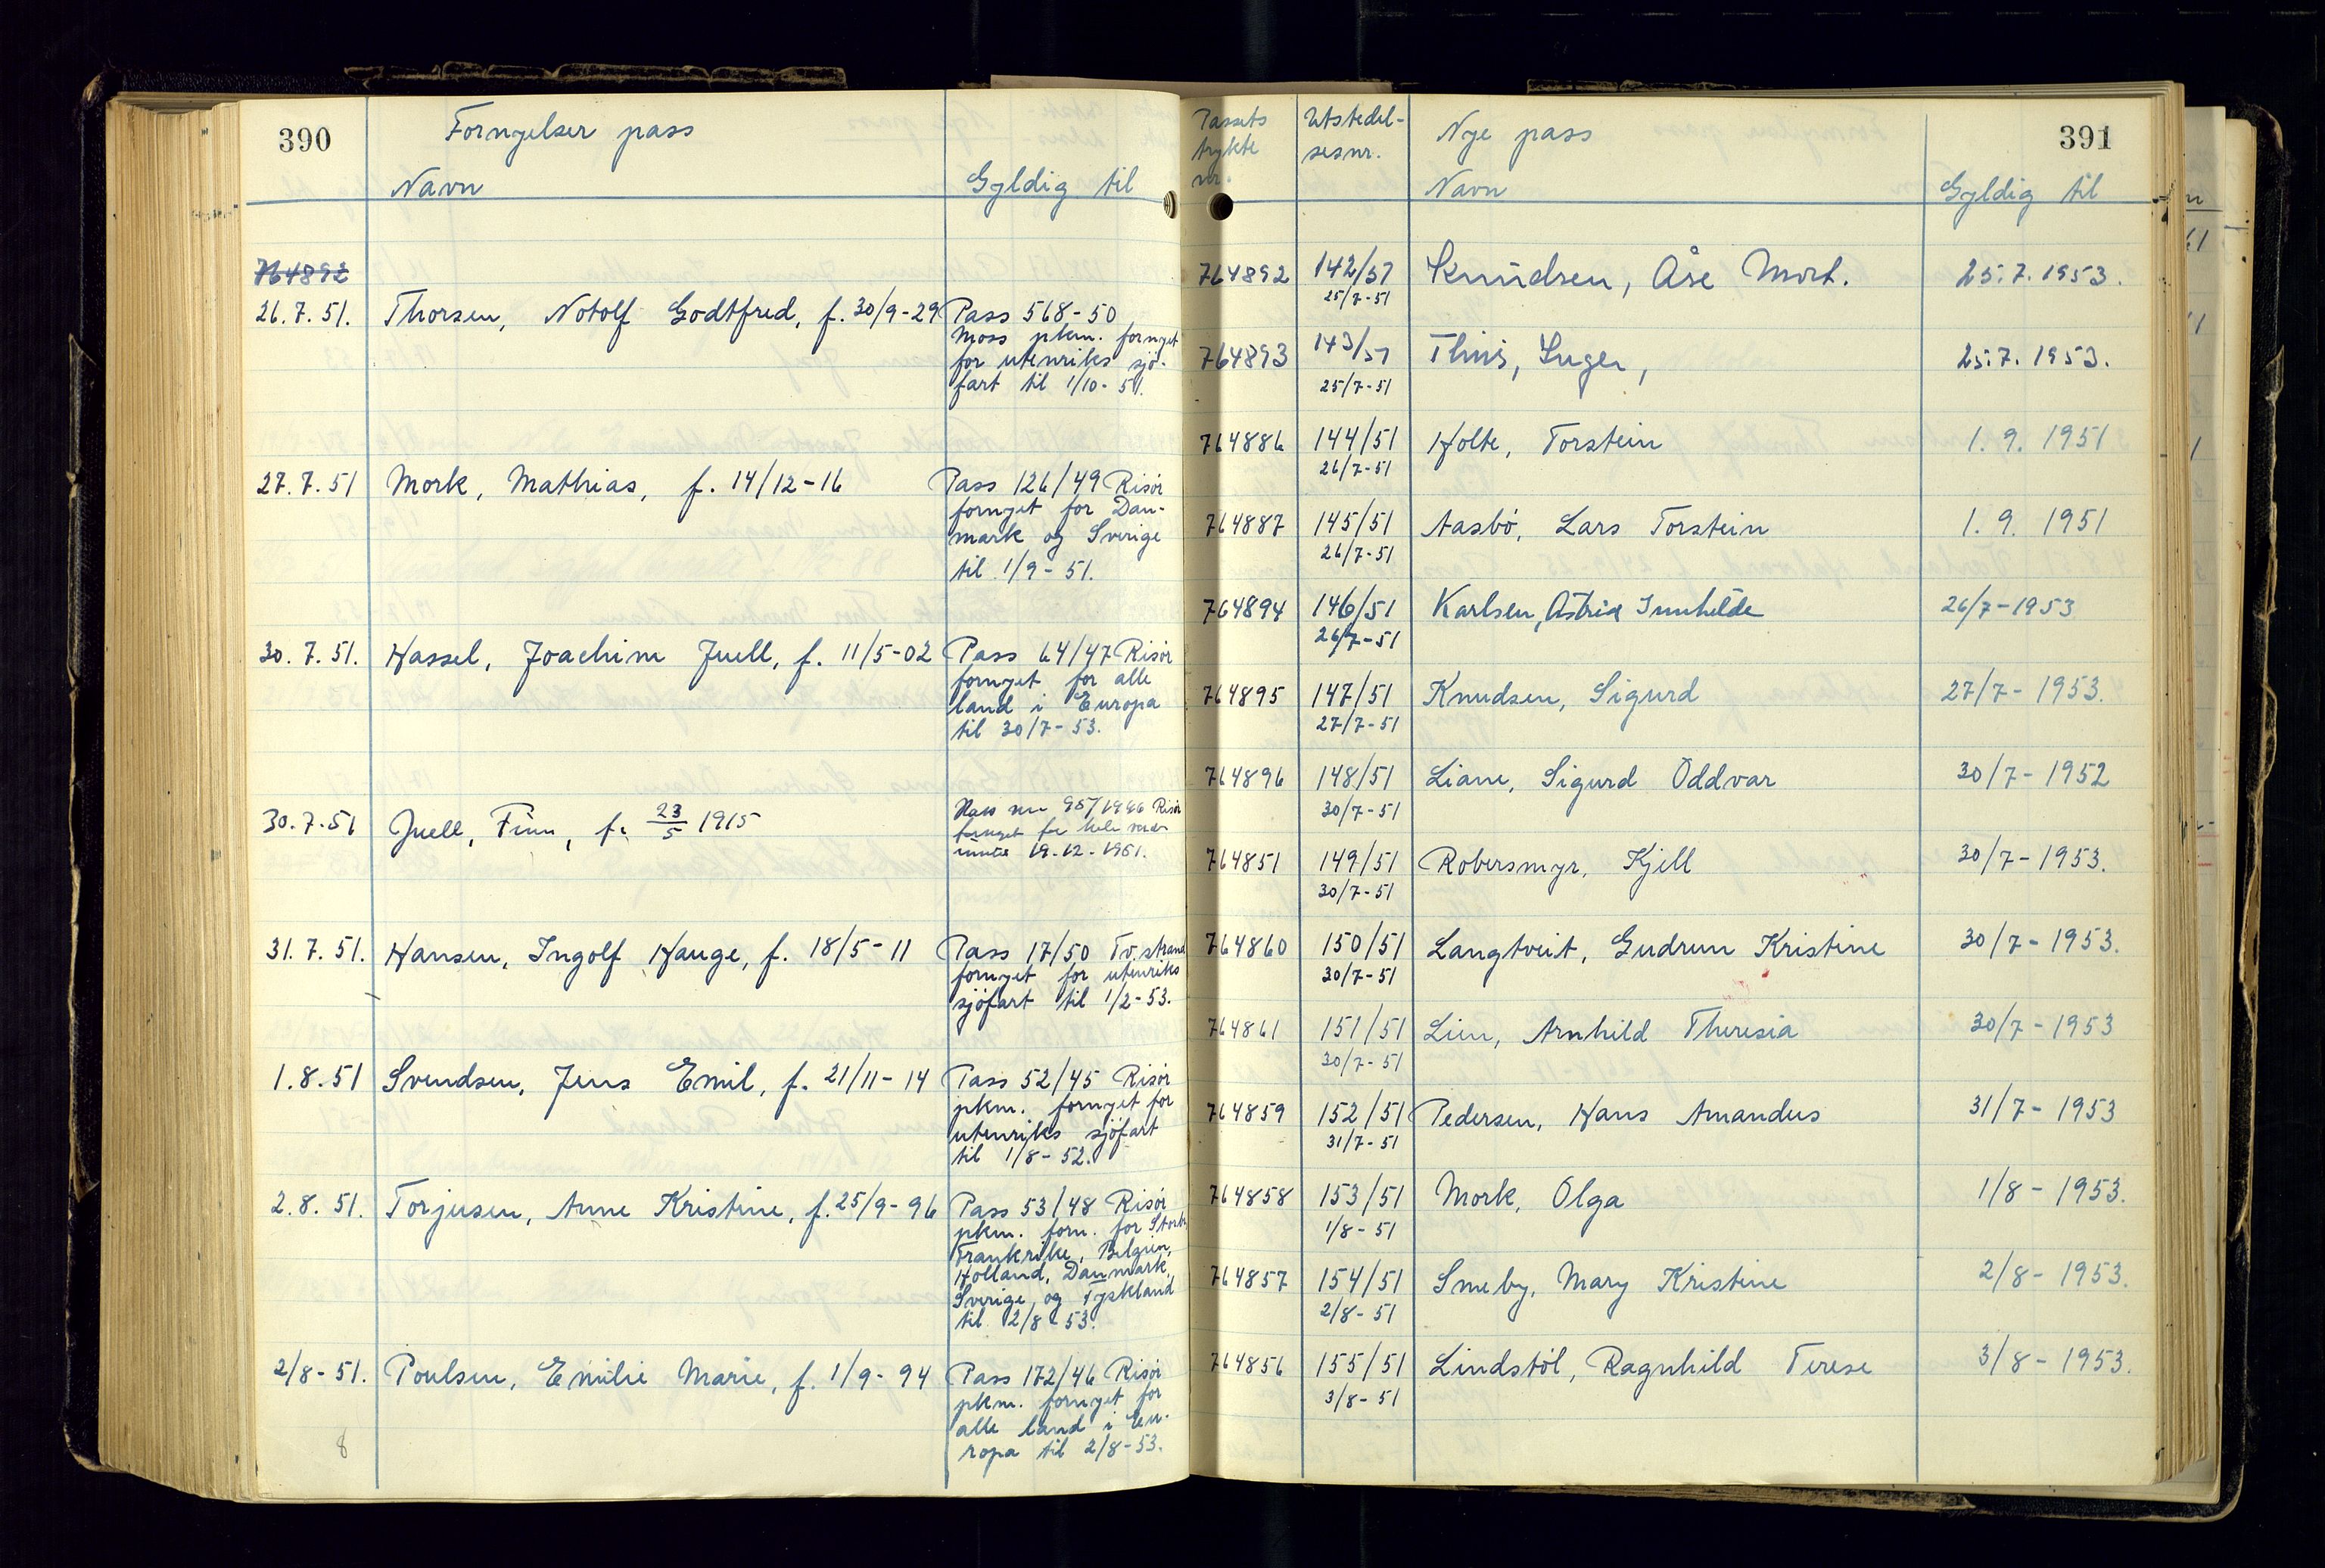 390
Fornyelser pass
Navn
Gyldig til
764892
26.7.51. Thorsen, Notolf Godtfred, f. 30/9-29 Pass 568-50
Moss pkm. fornyet
for utenriks sjø-
fart til 1/10-51.
27.7.51 Mork, Mathias, f. 14/12-16 Pass 126/49 Risör
fornyet for Dan-
mark og Sverige
til 1/9-51.
30.7.51. Hassel, Joachim Juell, f. 11/5-02 Pass 64/47 Risör
fornyet for alle
land i Europa
til 30/7-53.
30.7.51 Juell, Finn, f. 23/5 1915 Risör
19-12-1951.
31.7.51. Hansen, Ingolf Hauge, f. 18/5-11 Pass 17/50 Tv.strand
fornyet for utenriks
sjöfart til 1/2-53.
1.8.51 Svendsen, Jens Emil, f. 21/11-14 Pass 52/45 Risör
pkm. fornyet for
utenriks sjöfart
til 1/8-52.
2.8.51. Torjusen, Anne Kristine, f. 25/9-96 Pass 53/48 Risör
pkm. forn. for Storbr
Frankrike, Belgien,
Holland, Danmark,
Sverige, og Tyskland
til 2/8-53.
2/8-51. Poulsen, Emilie Marie, f. 1/9-94 Pass 172/46 Risör
pkm. fornyet for
alle land i Eu-
ropa til 2/8-53.
8
391
Passets
trykte
nr.
Utstedel-
sesnr.
Nye pass
Navn
Gyldig til
764892 142/51 Knudsen, Åse Mort. 25.7.1953.
25/7-51
764893 143/51 Thuis, Inger, 25.7.1953.
25/7-51
764886 144/51 Holte, Torstein 1.9.1951
26/7-51
764887 145/51 Aasbö, Lars Torstein 1.9.1951
26/7-51
764894 146/51 Karlsen, Astrid 26/7-1953
26/7-51
764895 147/51 Knudsen, Sigurd 27/7-1953.
27/7-51
764896 148/51 Liane, Sigurd Oddvar 30/7-1952
30/7-51
764851 149/51 Robersmyr, Kjell 30/7-1953.
30/7-51
764860 150/51 Langtveit, Gudrun Kristine 30/7-1953.
30/7-51
764861 151/51 Lien, Arnhild Theresia 30/7-1953
30/7-51
764859 152/51 Pedersen, Hans Amandus 31/7-1953
31/7-51
764858 153/51 Mork, Olga 1/8-1953.
1/8-51
764857 154/51 Smeby, Mary Kristine 2/8-1953.
2/8-51
764856 155/51 Lindstöl, Ragnhild Terese 3/8-1953.
3/8-51